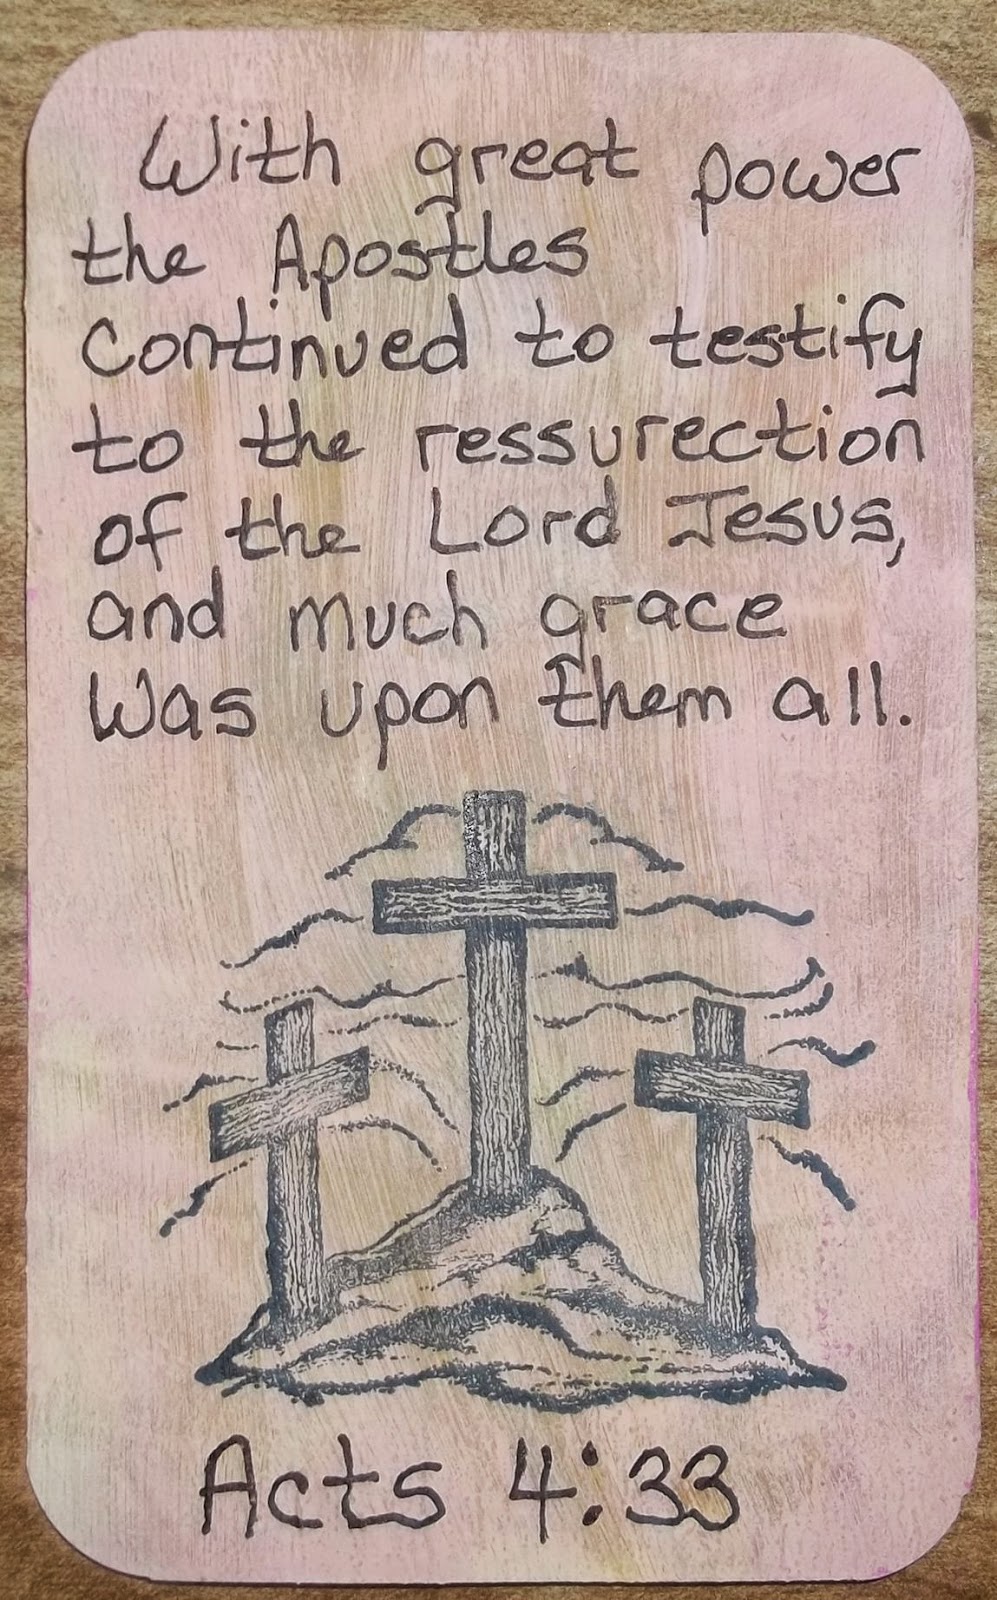 With great power
the Apostles
continued to testify
to the ressurection
of the Lord Jesus,
and much grace
was upon them all.
Acts 4:33